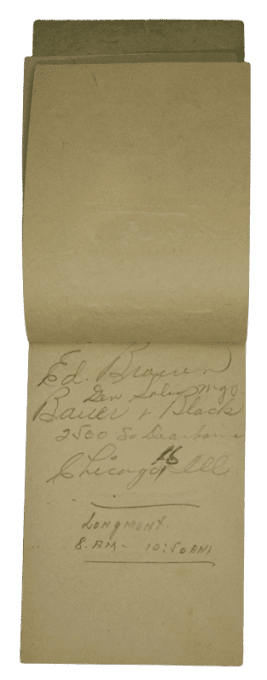 Ed. Brown
Gen Sales Mgr
Bauer & Black
2500 So Dearborn
Chicago 16 Ill
LONGMONT
8. AM - 10:50 AM